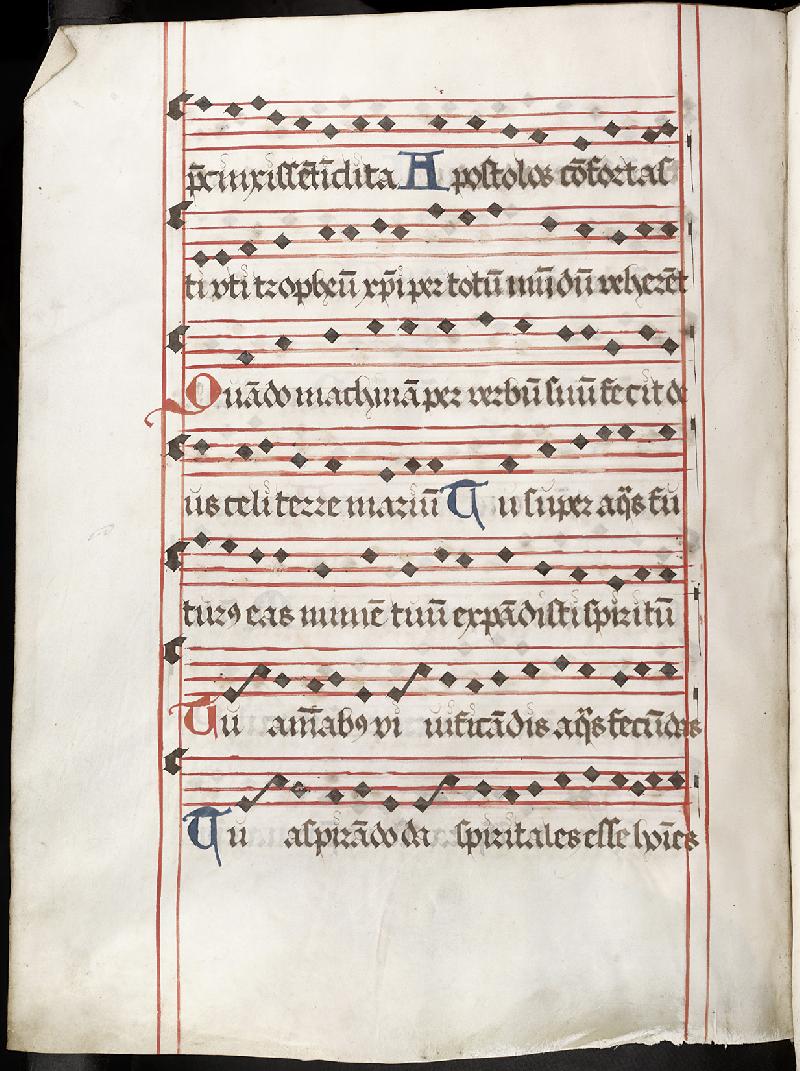 p̄cinxissēt īclita Apostolos cōfortas
ti vti tropheū xp̄i per totū mūdū veherēt
Quādo machinā per verbū suū fecit de
us celi terre mariū Tu super aq̄s fu
turꝰ eas numē tuū expādisti spiritū
Tu aīabꝰ vi uificādis aq̄s fecūdas
Tu aspirādo da spiritales esse hoīes